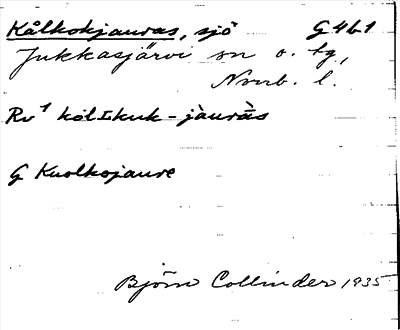 Kålkokjauras, sjö G 4b1
Jukkasjärvi sn o. tg,
Norrb. l.
Rv¹ kölIkuk-jàuràs
G Kuolkojaure
Björn Collinder 1935